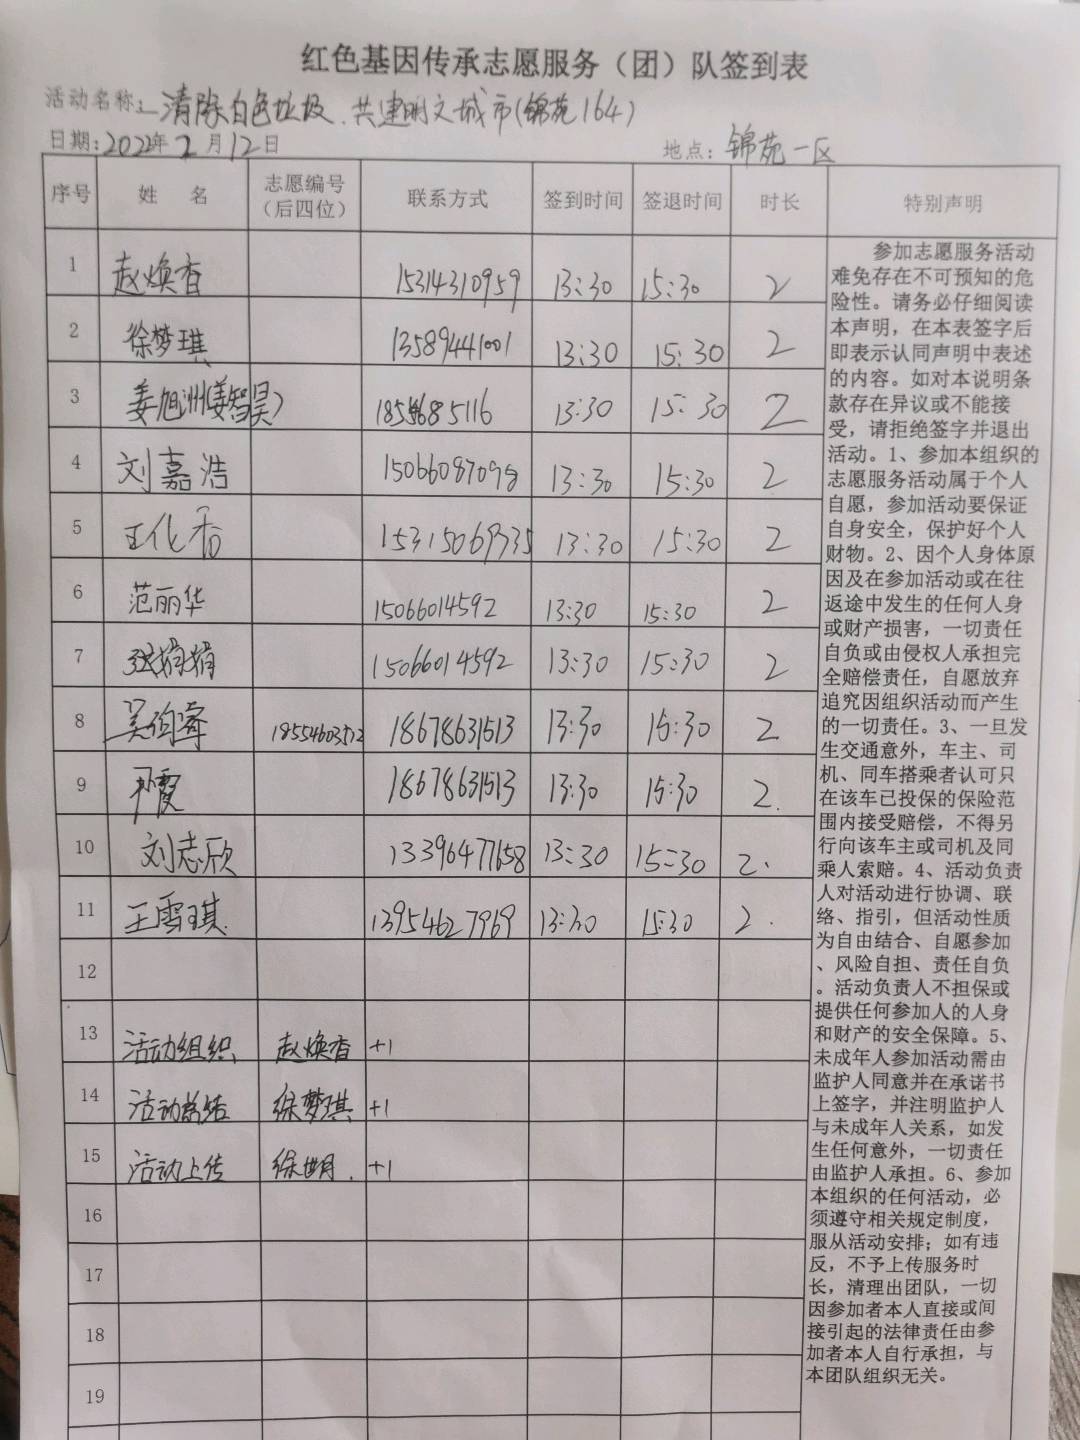 红色基因传承志愿服务（团）队签到表
活动名称：清除白色垃圾、共建明文城市(锦苑164)
日期：2022年2月12日 地点：锦苑一区
序号 姓 名 志愿编号（后四位） 联系方式 签到时间 签退时间 时长 特别声明
1 赵焕香 15314310959 13:30 15:30 2
2 徐梦琪 13589441001 13:30 15:30 2
3 姜旭洲(姜智昊) 13:30 15:30 2
4 刘嘉浩 13:30 15:30 2
5 王化香 13:30 15:30 2
6 范丽华 15066014592 13:30 15:30 2
7 张娟娟 15066014592 13:30 15:30 2
8 18678631513 13:30 15:30 2
9 18678631513 13:30 15:30 2.
10 刘志欣 13396477658 13:30 15:30 2.
11 王雪琪. 13954627969 13:30 15:30 2.
12
13 活动组织 赵焕香 +1
14 活动总结 徐梦琪 +1
15 活动上传 +1
16
17
18
19
参加志愿服务活动
难免存在不可预知的危
险性。请务必仔细阅读
本声明，在本表签字后
即表示认同声明中表述
的内容。如对本说明条
款存在异议或不能接
受，请拒绝签字并退出
活动。1、参加本组织的
志愿服务活动属于个人
自愿，参加活动要保证
自身安全，保护好个人
财物。2、因个人身体原
因及在参加活动或在往
返途中发生的任何人身
或财产损害，一切责任
自负或由侵权人承担完
全赔偿责任，自愿放弃
追究因组织活动而产生
的一切责任。3、一旦发
生交通意外，车主、司
机、同车搭乘者认可只
在该车已投保的保险范
围内接受赔偿，不得另
行向该车主或司机及同
乘人索赔。4、活动负责
人对活动进行协调、联
络、指引，但活动性质
为自由结合、自愿参加
、风险自担、责任自负
。活动负责人不担保或
提供任何参加人的人身
和财产的安全保障。5、
未成年人参加活动需由
监护人同意并在承诺书
上签字，并注明监护人
与未成年人关系，如发
生任何意外，一切责任
由监护人承担。6、参加
本组织的任何活动，必
须遵守相关规定制度，
服从活动安排；如有违
反，不予上传服务时
长，清理出团队，一切
因参加者本人直接或间
接引起的法律责任由参
加者本人自行承担，与
本团队组织无关。